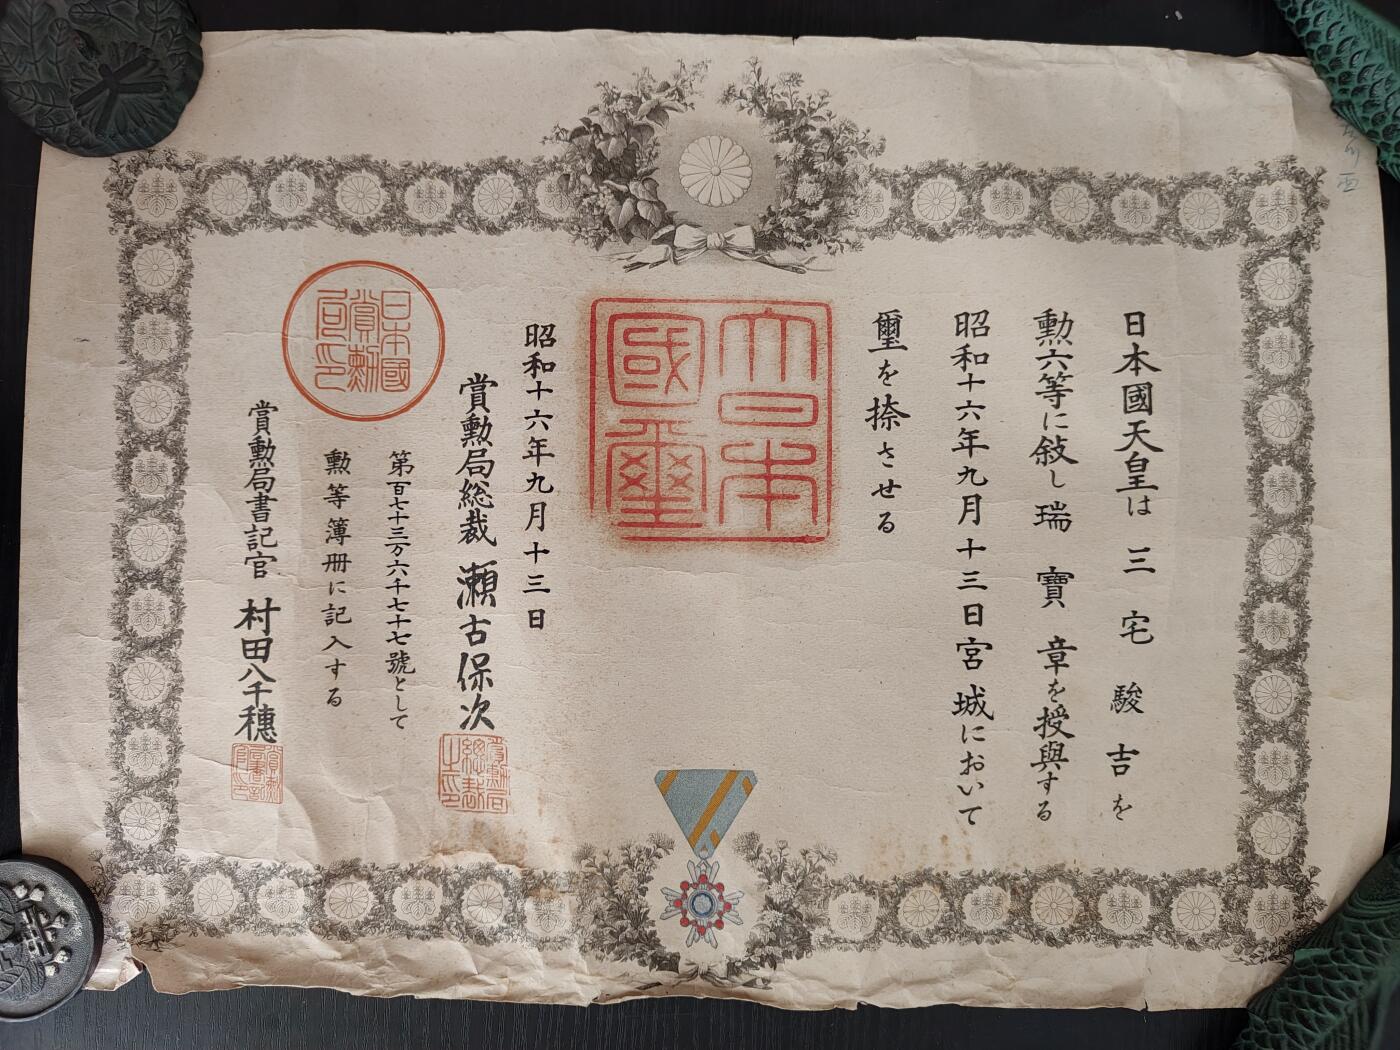 日本國天皇は三宅駿吉を
勲六等に敍し瑞寶章を授與する
昭和十六年九月十三日宮城において
璽を捺させる
大日本
國璽
昭和十六年九月十三日
賞勲局総裁 瀬古保次
第百七十三万六千七十七號として
勲等簿册に記入する
賞勲局書記官 村田八千穗
日本國
賞勳
局印
賞勳局
總裁
之印
賞勳
局書記
官印